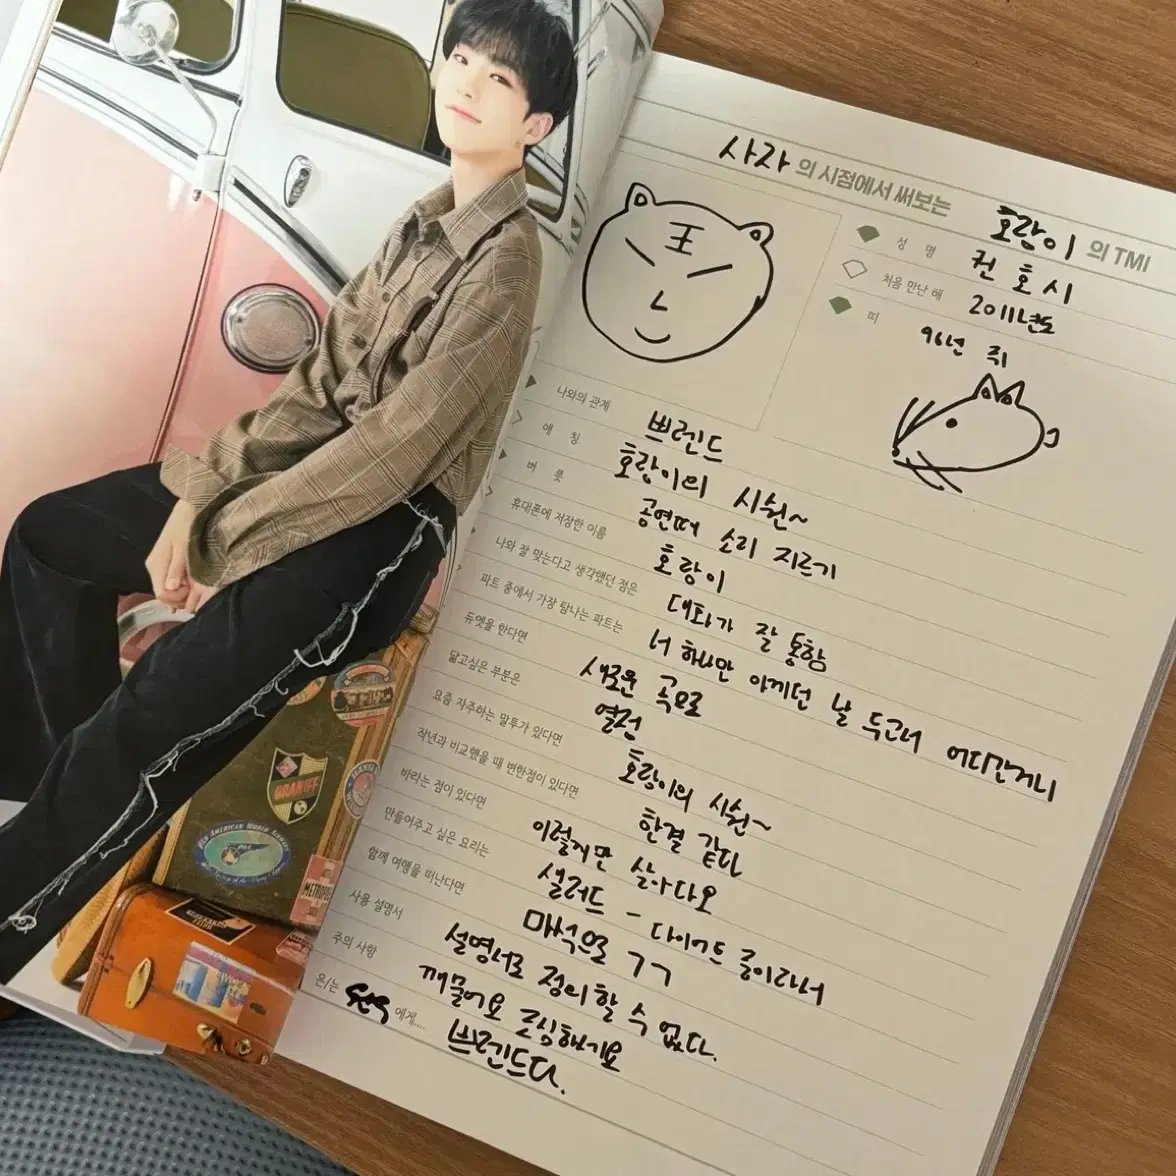 사자 의 시점에서 써보는 호랑이 의 TMI
王
성 명 권호시
처음 만난 해 2011년도
띠 96년 쥐
나와의 관계 쁘렌드
애 칭 호랑이의 시선~
버 릇 공연때 소리 지르기
휴대폰에 저장한 이름 호랑이
나와 잘 맞는다고 생각했던 점은 대화가 잘 통함
파트 중에서 가장 탐나는 파트는 너 하나만 아끼던 날 두고서 어디간거니
듀엣을 한다면 새로운 곡으로
닮고싶은 부분은 열정
요즘 자주하는 말투가 있다면 호랑이의 시선~
작년과 비교했을 때 변한점이 있다면 한결 같다
바라는 점이 있다면 이렇게만 살아다오
만들어주고 싶은 요리는 샐러드 - 다이어트 중이라서
함께 여행을 떠난다면 마석으로 ㄱㄱ
사용 설명서 설명서로 정의할 수 없다.
주의 사항 깨물어요 조심하세요
은/는 에게.... 쁘렌드다.
GRANOFF
PAN AMERICAN WORLD AIRWAYS
METROPOLE